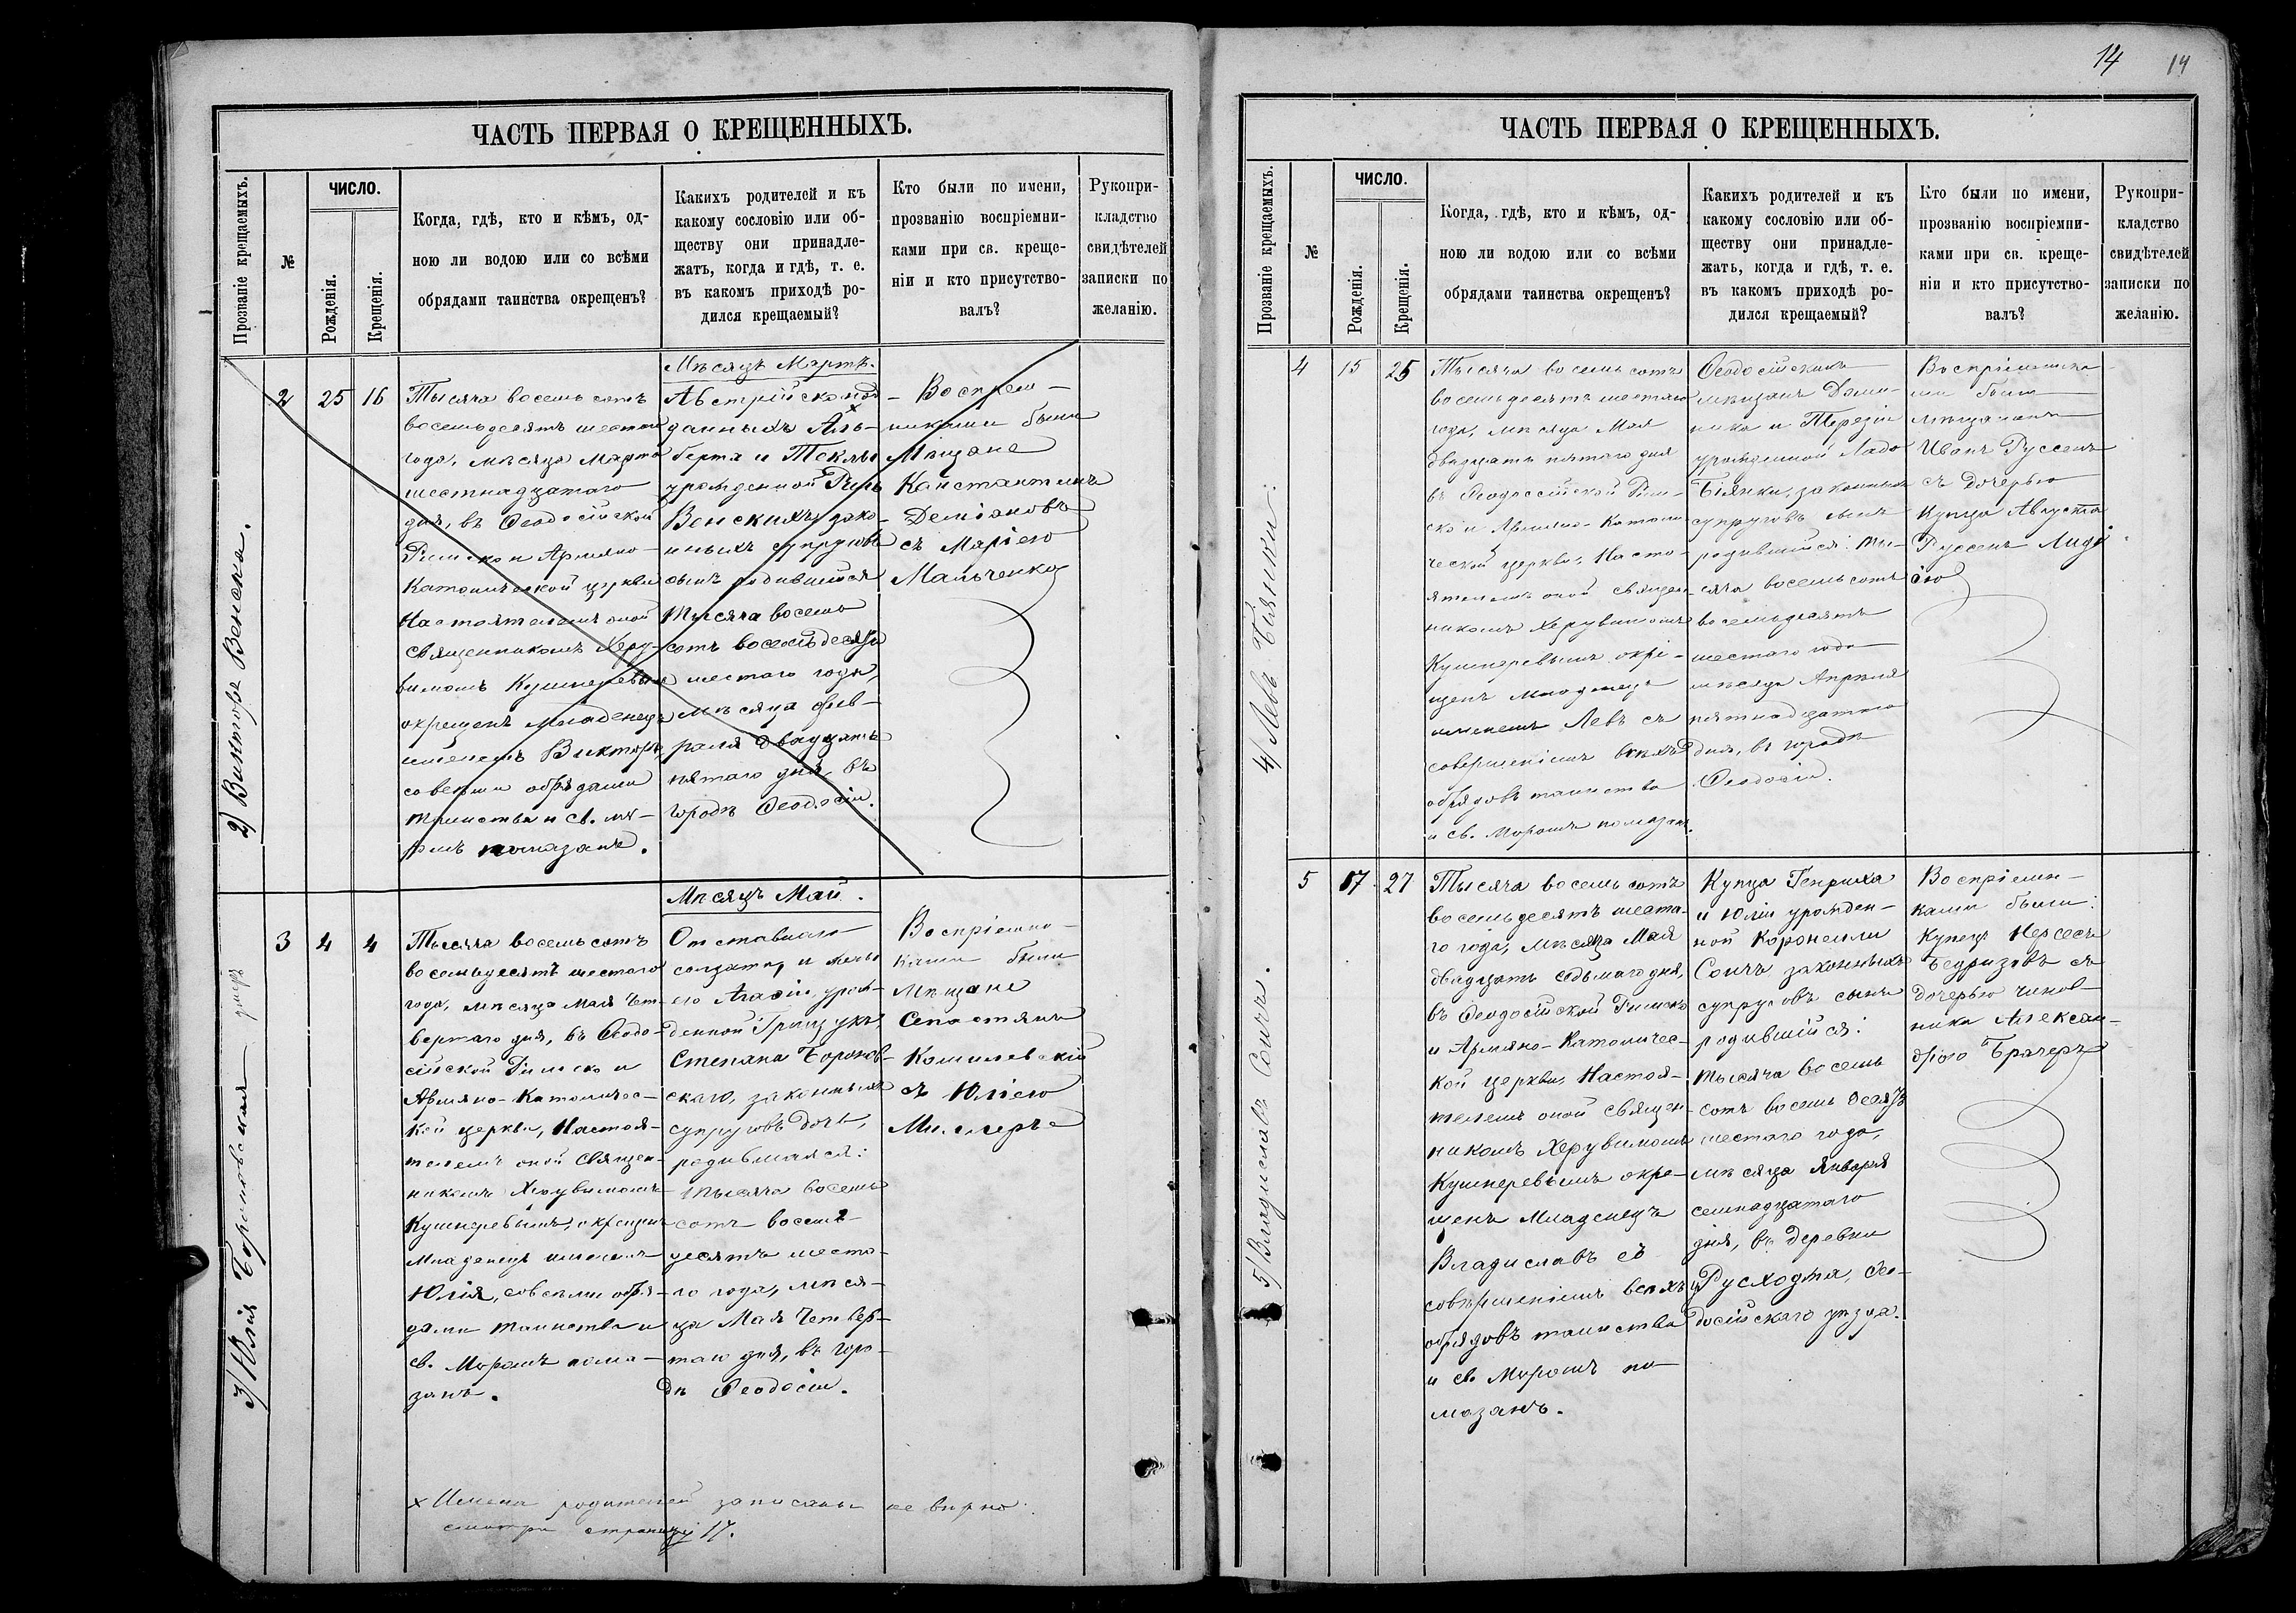 ЧАСТЬ ПЕРВАЯ О КРЕЩЕННЫХЪ.
Прозваніе крещаемыхъ.
№
ЧИСЛО.
Рожденія.
Крещенія.
Когда, гдѣ, кто и кѣмъ, од-
ною ли водою или со всѣми
обрядами таинства окрещенъ?
Какихъ родителей и къ
какому сословію или об-
ществу они принадле-
жатъ, когда и гдѣ, т. е.
въ какомъ приходѣ ро-
дился крещаемый?
Кто были по имени,
прозванію воспріемни-
ками при св. креще-
ніи и кто присутство-
валъ?
Рукопри-
кладство
свидѣтелей
записки по
желанію.
2) Викторъ Венскя.
2
25
16
Тысяча восемь сотъ
восемьдесятъ шестаго
года, мѣсяца Марта
шестнадцатаго
дня, въ Ѳеодосійской
Римско и Армяно-
Католической церкви
Настоятелемъ оной
священникомъ Херу-
вимомъ Кушнеревымъ
окрещенъ младенецъ
именемъ Викторъ,
со всѣми обрядами
таинства и св. мѵ-
ромъ помазанъ.
Мѣсяцъ Мартъ.
Австрійскопод-
данныхъ Аль-
берта и Теклы
урожденной
Венскихъ, зако-
нныхъ супруговъ
сынъ родившійся
тысяча восемь
сотъ восемьдесятъ
шестаго года,
мѣсяца Фев-
раля двадцать
пятаго дня, въ
городѣ Ѳеодосіи.
Воспрем-
никами были
Мѣщане
Константинъ
Деміановъ
съ Маріею
Мальченко
3) Юлія Бороновская
3
4
4
Тысяча восемь сотъ
восемьдесятъ шестаго
года, мѣсяца Мая чет-
вертаго дня, въ Ѳеодо-
сійской Римско и
Армяно-Католичес-
кой церкви, Настоя-
телемъ оной священ-
никомъ Херувимомъ
Кушнеревымъ, окрещенъ
Младенецъ именемъ
Юлія, со всѣми обря-
дами таинства и
св. Мѵромъ пома-
занъ.
Мѣсяцъ Май.
Отставнаго
солдата, и жены
его Агафіи, урож-
денной Грищукъ,
Степана Боронов-
скаго, законныхъ
супруговъ дочь,
родившаяся:
тысяча восемь
сотъ восемь-
десятъ шеста-
го года, мѣся-
ца Мая четвер-
таго дня, въ горо-
дѣ Ѳеодосіи.
Воспріемни-
ками были
Мѣщане
Севастянъ
Комилевскій
съ Юліею
Миллеръ
× Имена родителей записаны не вѣрно.
смотри страницу 17.
14
14
ЧАСТЬ ПЕРВАЯ О КРЕЩЕННЫХЪ.
Прозваніе крещаемыхъ.
№
ЧИСЛО.
Рожденія.
Крещенія.
Когда, гдѣ, кто и кѣмъ, од-
ною ли водою или со всѣми
обрядами таинства окрещенъ?
Какихъ родителей и къ
какому сословію или об-
ществу они принадле-
жатъ, когда и гдѣ, т. е.
въ какомъ приходѣ ро-
дился крещаемый?
Кто были по имени,
прозванію воспріемни-
ками при св. креще-
ніи и кто присутство-
валъ?
Рукопри-
кладство
свидѣтелей
записки по
желанію.
4) Левъ Біянки.
4
15
25
Тысяча восемь сотъ
восемьдесятъ шестаго
года, мѣсяца Мая
двадцать пятаго дня
въ Ѳеодосійской Рим-
ско и Армяно-Католи-
ческой церкви, Насто-
ятелемъ оной священ-
никомъ Херувимомъ
Кушнеревымъ окре-
щенъ младенецъ
именемъ Левъ съ
совершеніемъ всѣхъ
обрядовъ таинства
и св. Мѵромъ помазанъ.
Ѳеодосійскихъ
мѣщанъ Доми-
ника и Терезіи
урожденной Ладо
Біянки, законныхъ
супруговъ сынъ
родившійся: ты-
сяча восемь сотъ
восемьдесятъ
шестаго года
мѣсяца Апрѣля
пятнадцатаго
дня, въ городѣ
Ѳеодосіи.
Воспріемника-
ми были
мѣщанинъ
Иванъ Руссенъ
съ дочерью
Купца Августа
Руссенъ Лиді-
ею
5) Владиславъ Соичъ.
5
17
27
Тысяча восемь сотъ
восемьдесятъ шеста-
го года, мѣсяца Мая
двадцать седьмаго дня,
въ Ѳеодосійской Римско
и Армяно-Католичес-
кой церкви, Настоя-
телемъ оной священ-
никомъ Херувимомъ
Кушнеревымъ окре-
щенъ Младенецъ
Владиславъ съ
совершеніемъ всѣхъ
обрядовъ таинства
и св. Мѵромъ по-
мазанъ.
Купца Генриха
и Юліи урожден-
ной Коронелли
Соичъ законныхъ
супруговъ сынъ
родившійся:
тысяча восемь
сотъ восемь десятъ
шестаго года,
мѣсяца Января
семнадцатаго
дня, въ деревни
Русходжа, Ѳео-
досійскаго уѣзда.
Воспріемни-
ками были:
Купецъ Нерсесъ
Бедризовъ съ
дочерью чинов-
ника Алексан-
дрою Брачеръ